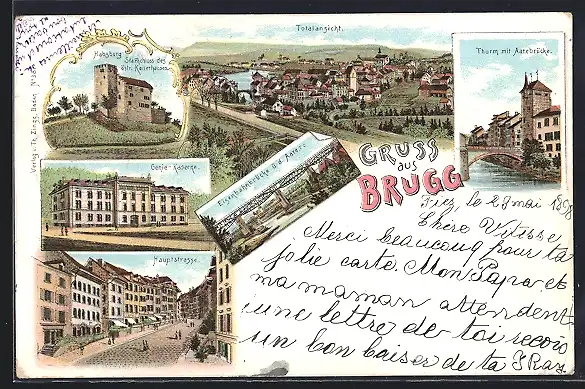 Habsburg
Stammschloss des
östr. Kaiserhauses.
Totalansicht.
Thurm mit Aarebrücke.
Genie-Kaserne.
Eisenbahnbrücke ü.d. Aare.
GRUSS
aus
BRUGG
Hauptstrasse.
le 28 mai 1898
Chère
Merci beaucoup pour ta
jolie carte. Mon Papa et
ma maman attendent
une lettre de toi reçois
un bon baiser de ta
Verlag v. Th. Zingg, Baden